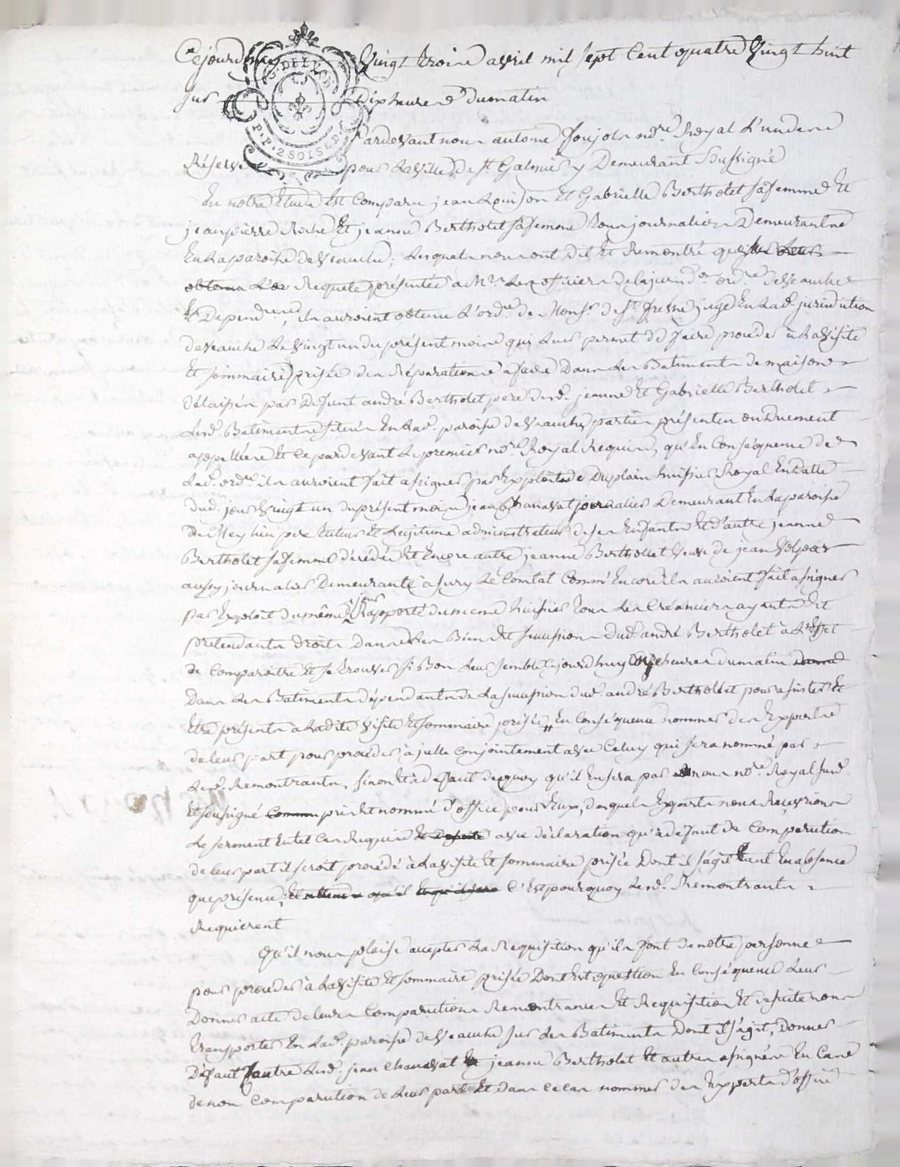 Cejourdhuy Vingt troise avril mil sept Cent quatre Vingt huit
sur Dix heure Dumatin
G. DE LYON
P.P. 2 SOLS 8 D.
Pardevant nous antoine Joujoln nre. Royal L'undené
Réservé pour LaVille De st. Galmier y Demeurant Sussigné
En notre Etude Est Comparu jean Loüison Et Gabrielle Bertholet safemme Et
jean pierre Roche Et jeanne Bertholet safemme tous journalier Demeurant
En La paroise De Veauche, Lesquels nous ont dit Et Remontré que sur Leurs
obtenu Les Requete présentée a Mrs. Les officiers delajurid. ord.re deVeauche
Et Dépendances, ils auroient obtenu L'ord.e de Monsr. de st. juge En Lad. jurisdiction
de Veauche Le Vingt un du présent mois qui Leur permet de faire proceder à La Visite
Et sommaire prisée des Réparations a faire Dans Les Batiments de maison
Délaissés par Defunt andré Bertholet pere desd. jeanne Et Gabrielle Bertholet
Lesd. Batiments situés En Lad. paroise de Veauche, parties présentes ou Duement
appellées Et ce pardevant Le premier nre. Royal Requis, qu'En Conséquence de
Lad. ordce. ils auroient fait assigner par Exploit de Duplain huissier Royal En Datte
dud. jour Vingt un du présent mois jean Chanavat journalier Demeurant En La paroise
de Meylieu, pere tuteur Et Légitime administrateur de ses Enfants Et d'autre jeanne
Bertholet safemme décédée Et Encore autre jeanne Bertholet Veuve de jean
aussy journalier Demeurante a sury Le Comtal Comm'Encore ils auroient fait assigner
par Exploit du même jour Rapporté du meme huissier tous Les Créanciers ayants Et
prétendants droits Dans Les Biens Et succession Dud. andré Bertholet à L'Effet
de Comparoitre Et se trouver si Bon Leur semble cejourdhuy heures du matin
Dans Les Batiments dépendants de La succession dud. andré Bertholet pour assister Et
Etre présents a Ladite Visite Et sommaire prisée En Conséquence nommer des Experts
de leur part pour proceder à jcelle conjointement avec Celuy qui sera nommé par
Lesd. Remontrants, sinon Et à defaut dequoy qu'il En sera par nous nre. Royal susd.
Et soussigné pris Et nommé d'office pour Eux, desquels Experts nous Recevrions
Le serment En tel Cas Requis avec déclaration qu'a défaut de Comparution
de leur part il seroit procédé à La Visite Et sommaire prisée Dont il s'agit tant En absence
que présence, C'Est pourquoy Lesd. Remontrants
Requierent
Qu'il nous plaise accepter La Requisition qu'ils font de notre personne
pour proceder à La Visite Et sommaire prisée Dont Est question En Conséquence Leur
Donner acte de leurs Comparutions Remontrances Et Requisition Et desuite nous
transporter En Lad. paroise de Veauche sur Les Batiments Dont il s'agit, Donner
Défaut Contre Lesd. jean Chanavat Et jeanne Bertholet Et autres assignés En Cas
de non Comparution de Leur part Et Dans ce Cas nommer des Experts d'office